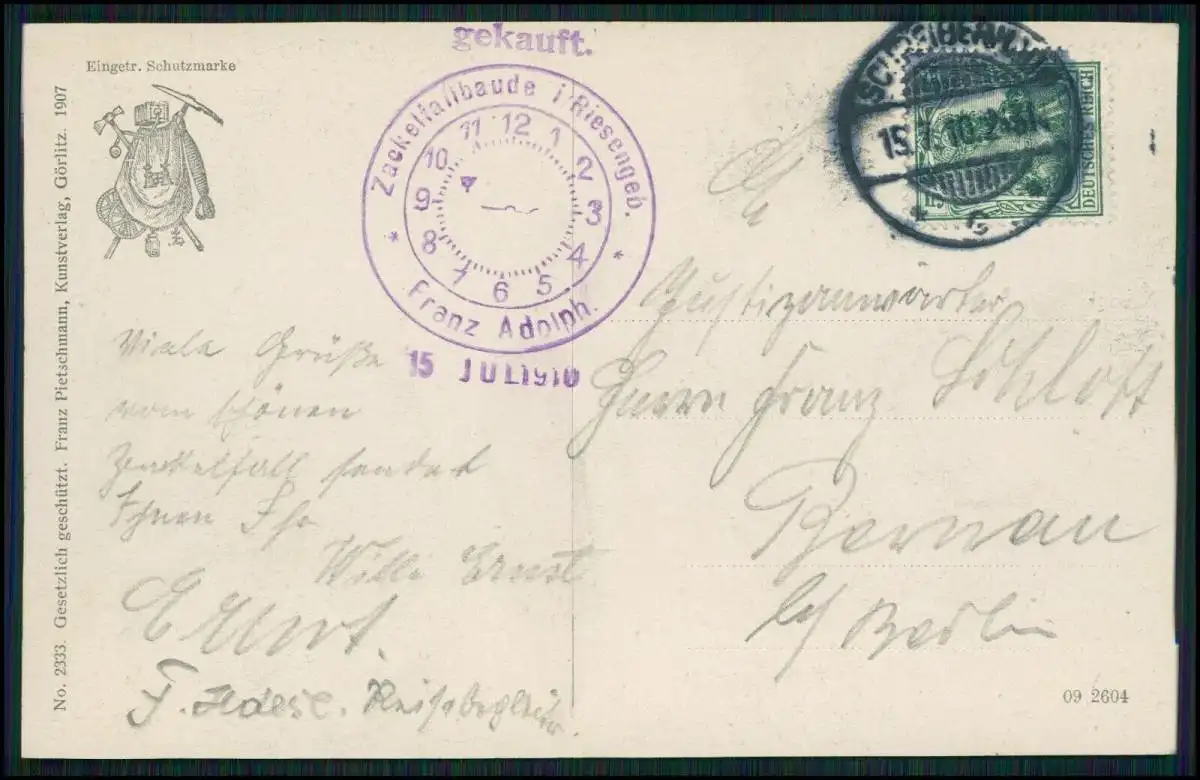 gekauft.
Eingetr. Schutzmarke
No. 2333. Gesetzlich geschützt. Franz Pietschmann, Kunstverlag, Görlitz. 1907
Zackelfallbaude i/Riesengeb.
12
1
2
3
4
5
6
7
8
9
10
11
* Franz Adolph. *
15 JULI 1910
SCHREIBERHAU
15.7.10.
DEUTSCHES REICH
Justizanwärter
Herrn Franz
Bernau
b/ Berlin
Viele Grüße
vom schönen
Zackelfall sendet
Ihnen Ihr
Willi Ernst
F. Reisebegleiter
09 2604